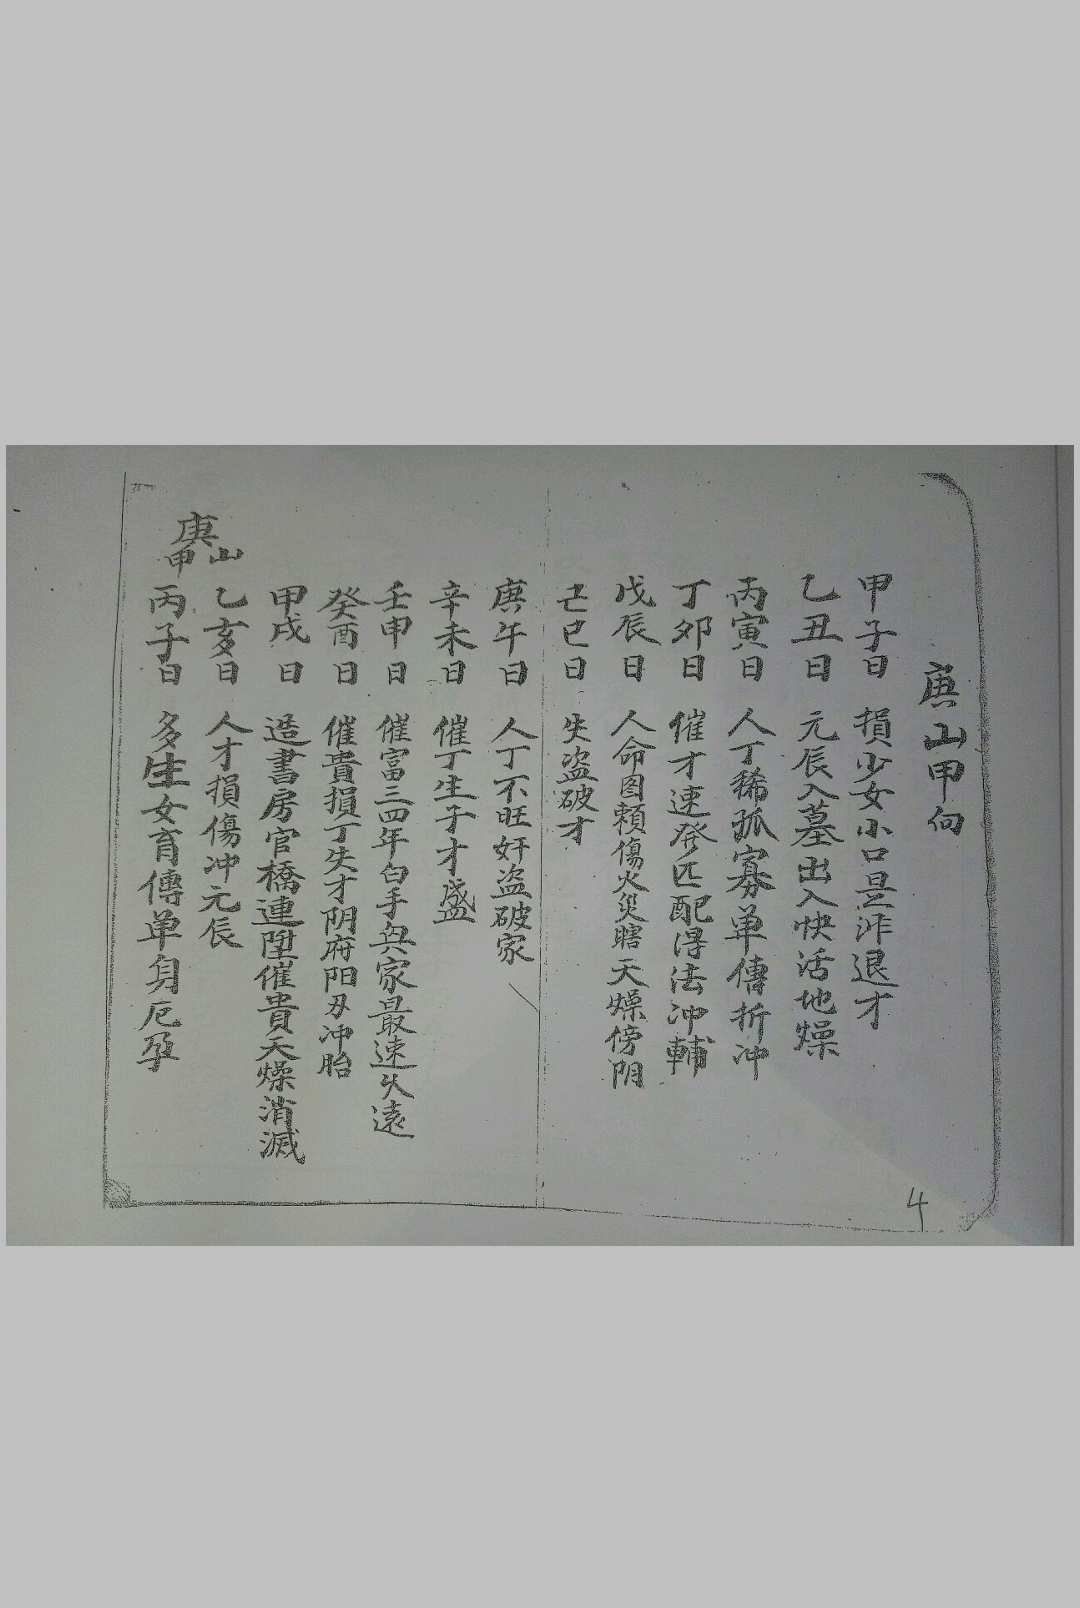 庚山甲向
甲子日 損少女小口是非退才
乙丑日 元辰入墓出入快活地燥
丙寅日 人丁稀孤寡单傳折冲
丁卯日 催才速發匹配得法冲輔
戊辰日 人命图賴傷火災瞎天燥傍阴
己巳日 失盗破才
庚午日 人丁不旺奸盗破家
辛未日 催丁生子才盛
壬申日 催富三四年白手興家最速久遠
癸酉日 催貴損丁失才阴府阳刃冲胎
甲戌日 造書房官橋連陞催貴天燥消滅
乙亥日 人才損傷冲元辰
丙子日 多生女育傳单身厄孕
庚山甲
4